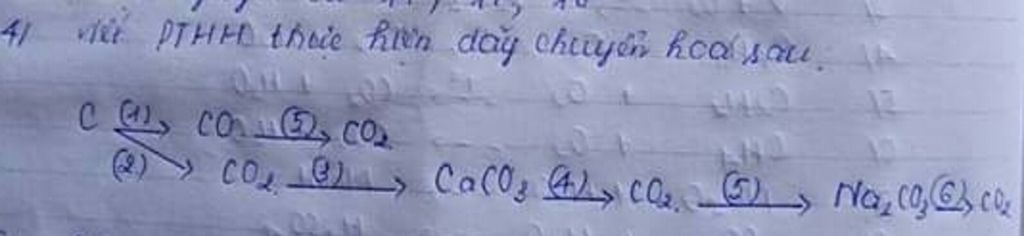 4) Viết PTHH thực hiện dãy chuyển hoá sau.
C (1)→ CO (5)→ CO₂
(2)→ CO₂ (3)→ CaCO₃ (4)→ CO₂ (5)→ Na₂CO₃ (6)→ CO₂